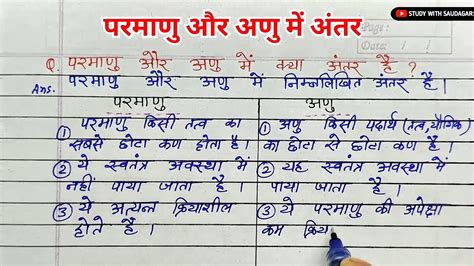 परमाणु और अणु में अंतर
STUDY WITH SAUDAGAR
Page:
Date: / /
Q. परमाणु और अणु में क्या अंतर है ?
Ans. परमाणु और अणु में निम्नलिखित अंतर है।
परमाणु
① परमाणु किसी तत्व का
सबसे छोटा कण होता है।
② ये स्वतंत्र अवस्था में
नहीं पाया जाता है।
③ ये अत्यन्त क्रियाशील
होते है।
अणु
① अणु किसी पदार्थ (तत्व,यौगिक)
का छोटा से छोटा कण है।
② यह स्वतंत्र अवस्था में
पाया जाता है।
③ ये परमाणु की अपेक्षा
कम क्रिय